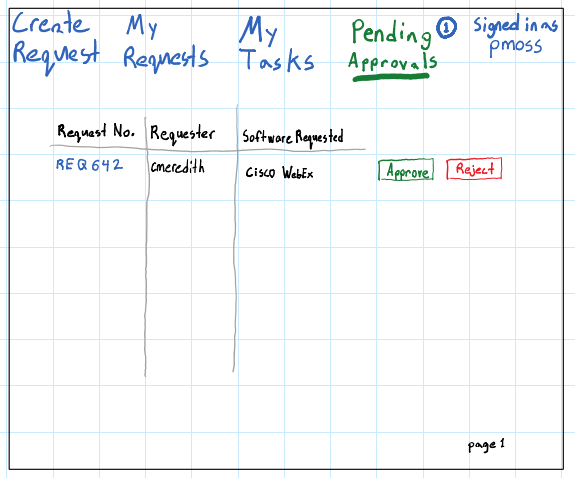 Create Request
My Requests
My Tasks
Pending Approvals
1
Signed in as pmoss
Request No. Requester Software Requested
REQ642 cmeredith Cisco WebEx Approve Reject
page 1